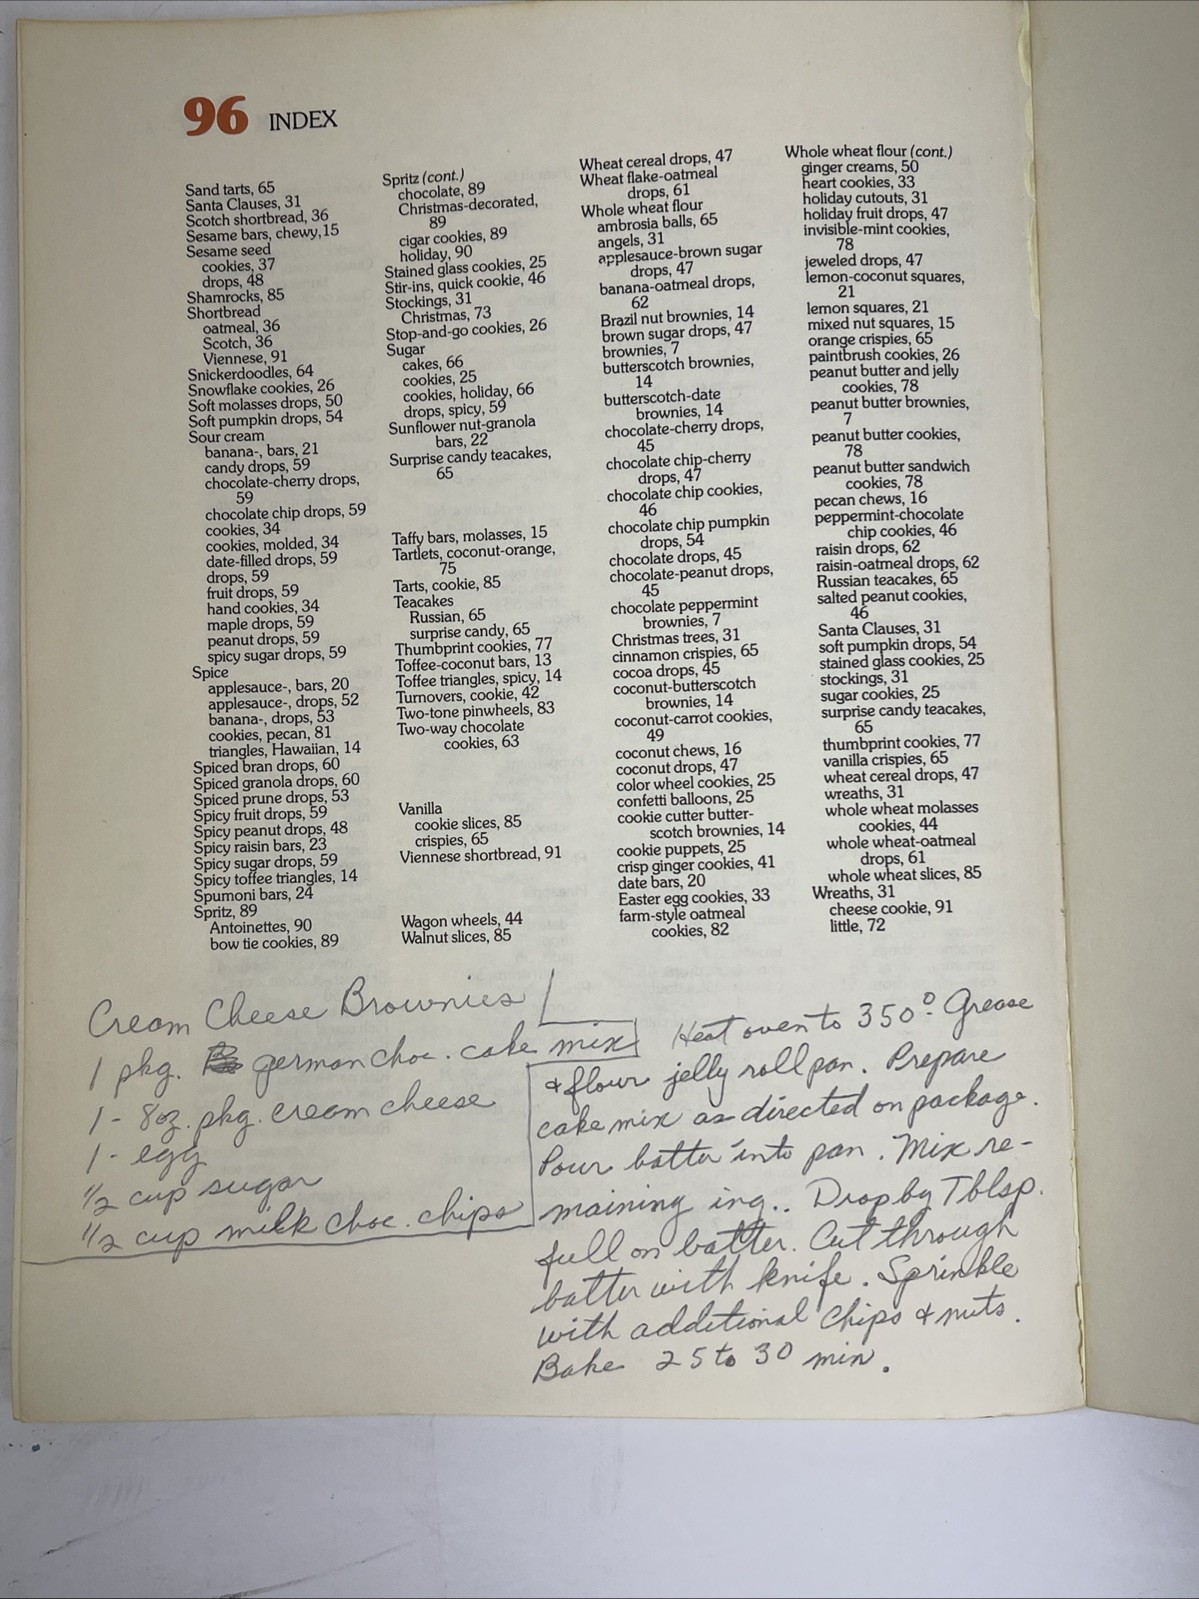 96 INDEX
Sand tarts, 65
Santa Clauses, 31
Scotch shortbread, 36
Sesame bars, chewy, 15
Sesame seed
cookies, 37
drops, 48
Shamrocks, 85
Shortbread
oatmeal, 36
Scotch, 36
Viennese, 91
Snickerdoodles, 64
Snowflake cookies, 26
Soft molasses drops, 50
Soft pumpkin drops, 54
Sour cream
banana-, bars, 21
candy drops, 59
chocolate-cherry drops,
59
chocolate chip drops, 59
cookies, 34
cookies, molded, 34
date-filled drops, 59
drops, 59
fruit drops, 59
hand cookies, 34
maple drops, 59
peanut drops, 59
spicy sugar drops, 59
Spice
applesauce-, bars, 20
applesauce-, drops, 52
banana-, drops, 53
cookies, pecan, 81
triangles, Hawaiian, 14
Spiced bran drops, 60
Spiced granola drops, 60
Spiced prune drops, 53
Spicy fruit drops, 59
Spicy peanut drops, 48
Spicy raisin bars, 23
Spicy sugar drops, 59
Spicy toffee triangles, 14
Spumoni bars, 24
Spritz, 89
Antoinettes, 90
bow tie cookies, 89
Spritz (cont.)
chocolate, 89
Christmas-decorated,
89
cigar cookies, 89
holiday, 90
Stained glass cookies, 25
Stir-ins, quick cookie, 46
Stockings, 31
Christmas, 73
Stop-and-go cookies, 26
Sugar
cakes, 66
cookies, 25
cookies, holiday, 66
drops, spicy, 59
Sunflower nut-granola
bars, 22
Surprise candy teacakes,
65
Taffy bars, molasses, 15
Tartlets, coconut-orange,
75
Tarts, cookie, 85
Teacakes
Russian, 65
surprise candy, 65
Thumbprint cookies, 77
Toffee-coconut bars, 13
Toffee triangles, spicy, 14
Turnovers, cookie, 42
Two-tone pinwheels, 83
Two-way chocolate
cookies, 63
Vanilla
cookie slices, 85
crispies, 65
Viennese shortbread, 91
Wagon wheels, 44
Walnut slices, 85
Wheat cereal drops, 47
Wheat flake-oatmeal
drops, 61
Whole wheat flour
ambrosia balls, 65
angels, 31
applesauce-brown sugar
drops, 47
banana-oatmeal drops,
62
Brazil nut brownies, 14
brown sugar drops, 47
brownies, 7
butterscotch brownies,
14
butterscotch-date
brownies, 14
chocolate-cherry drops,
45
chocolate chip-cherry
drops, 47
chocolate chip cookies,
46
chocolate chip pumpkin
drops, 54
chocolate drops, 45
chocolate-peanut drops,
45
chocolate peppermint
brownies, 7
Christmas trees, 31
cinnamon crispies, 65
cocoa drops, 45
coconut-butterscotch
brownies, 14
coconut-carrot cookies,
49
coconut chews, 16
coconut drops, 47
color wheel cookies, 25
confetti balloons, 25
cookie cutter butter-
scotch brownies, 14
cookie puppets, 25
crisp ginger cookies, 41
date bars, 20
Easter egg cookies, 33
farm-style oatmeal
cookies, 82
Whole wheat flour (cont.)
ginger creams, 50
heart cookies, 33
holiday cutouts, 31
holiday fruit drops, 47
invisible-mint cookies,
78
jeweled drops, 47
lemon-coconut squares,
21
lemon squares, 21
mixed nut squares, 15
orange crispies, 65
paintbrush cookies, 26
peanut butter and jelly
cookies, 78
peanut butter brownies,
7
peanut butter cookies,
78
peanut butter sandwich
cookies, 78
pecan chews, 16
peppermint-chocolate
chip cookies, 46
raisin drops, 62
raisin-oatmeal drops, 62
Russian teacakes, 65
salted peanut cookies,
46
Santa Clauses, 31
soft pumpkin drops, 54
stained glass cookies, 25
stockings, 31
sugar cookies, 25
surprise candy teacakes,
65
thumbprint cookies, 77
vanilla crispies, 65
wheat cereal drops, 47
wreaths, 31
whole wheat molasses
cookies, 44
whole wheat-oatmeal
drops, 61
whole wheat slices, 85
Wreaths, 31
cheese cookie, 91
little, 72
Cream Cheese Brownies
1 pkg. german choc. cake mix
1 - 8oz. pkg. cream cheese
1 - egg
1/2 cup sugar
1/2 cup milk choc. chips
Heat oven to 350°. Grease
& flour jelly roll pan. Prepare
cake mix as directed on package.
Pour batter into pan. Mix re-
maining ing.. Drop by Tblsp.
full on batter. Cut through
batter with knife. Sprinkle
with additional chips & nuts.
Bake 25 to 30 min.